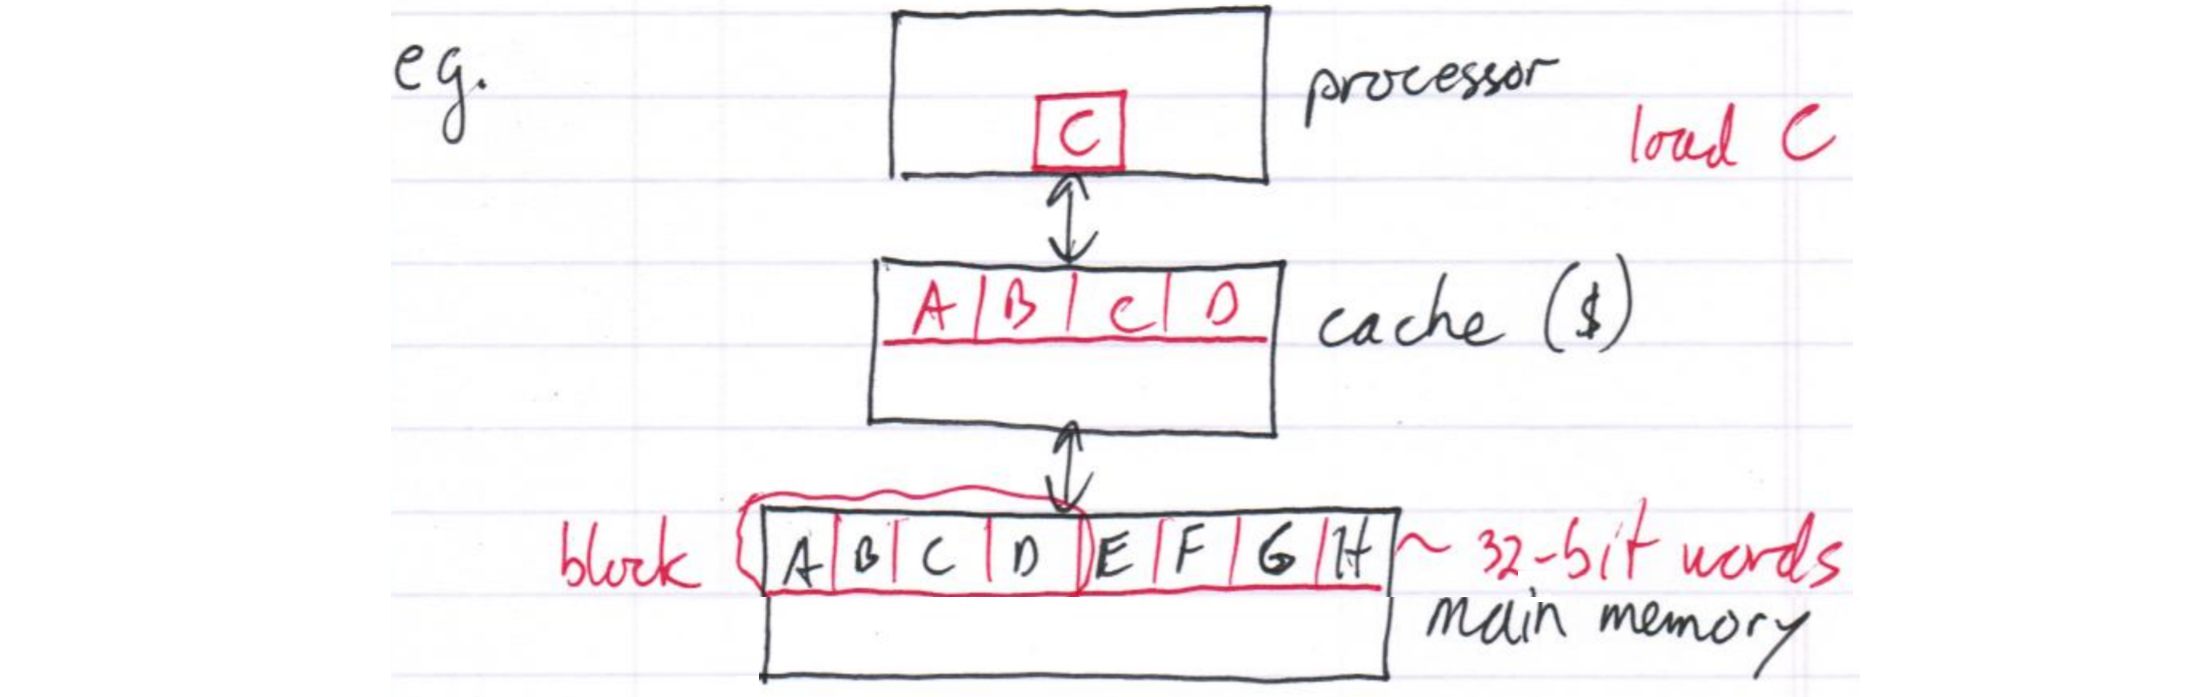 eg.
processor
load C
C
A B C D
cache ($)
block
A B C D E F G H
~ 32-bit words
main memory